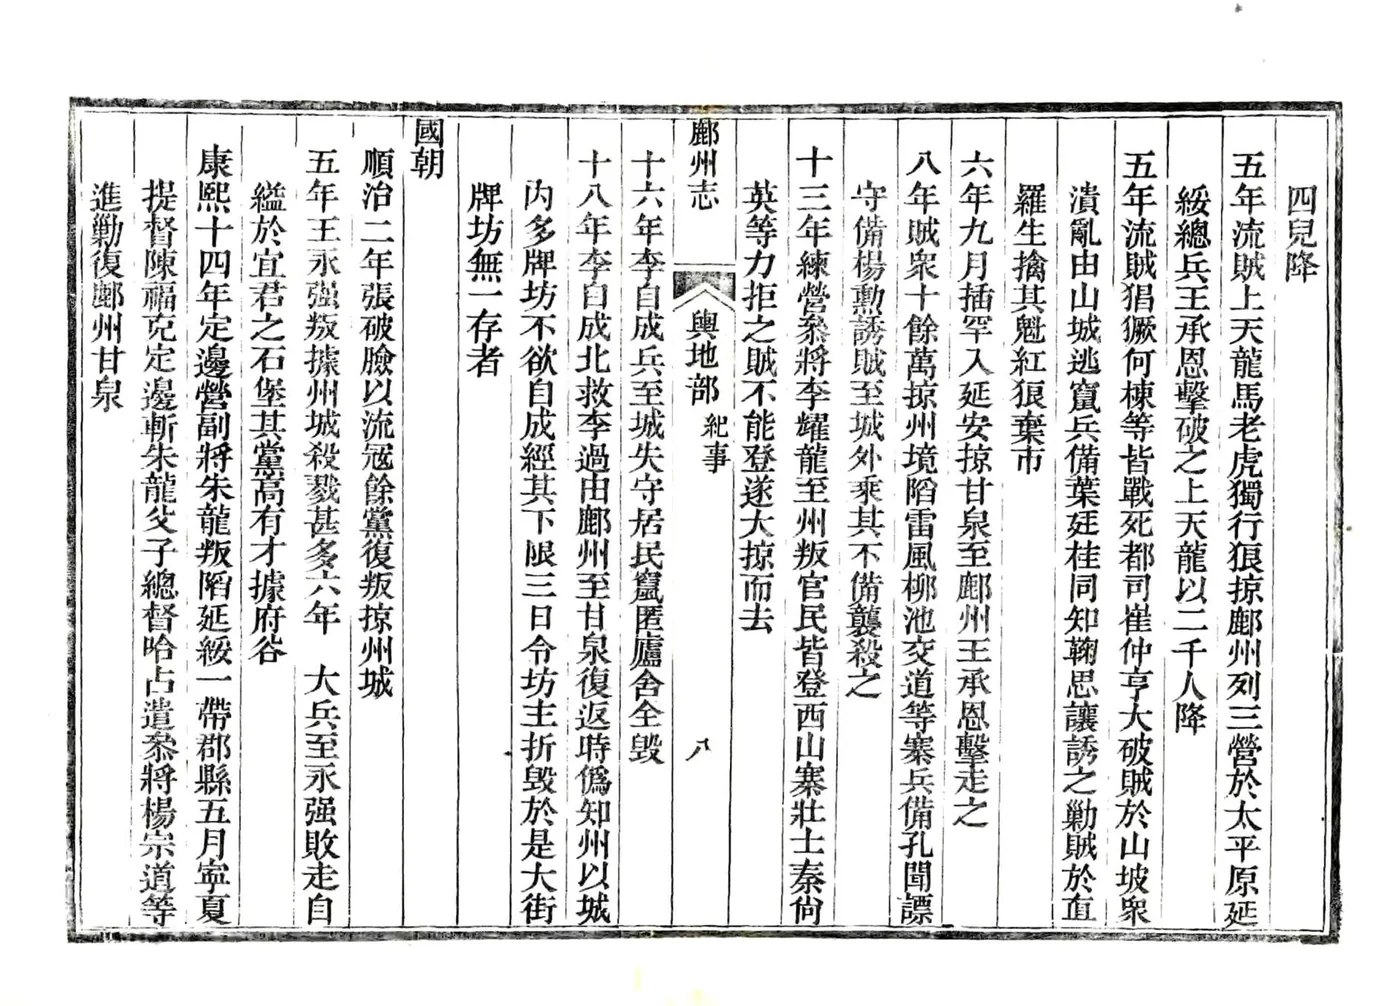 四兒降
五年流賊上天龍馬老虎獨行狼掠鄜州列三營於太平原延
綏總兵王承恩擊破之上天龍以二千人降
五年流賊猖獗何棟等皆戰死都司崔仲亨大破賊於山坡眾
潰亂由山城逃竄兵備葉廷桂同知鞠思讓誘之勦賊於直
羅生擒其魁紅狼棄市
六年九月插罕入延安掠甘泉至鄜州王承恩擊走之
八年賊眾十餘萬掠州境陷雷風柳池交道等寨兵備孔聞謤
守備楊勳誘賊至城外乘其不備襲殺之
十三年練營叅將李耀龍至州叛官民皆登西山寨壯士秦尙
英等力拒之賊不能登遂大掠而去
鄜州志 輿地部 紀事 八
十六年李自成兵至城失守居民竄匿廬舍全毀
十八年李自成北救李過由鄜州至甘泉復返時僞知州以城
內多牌坊不欲自成經其下限三日令坊主折毀於是大街
牌坊無一存者
國朝
順治二年張破臉以流冦餘黨復叛掠州城
五年王永强叛據州城殺戮甚多六年 大兵至永强敗走自
縊於宜君之石堡其黨高有才據府谷
康熙十四年定邊營副將朱龍叛陷延綏一帶郡縣五月寧夏
提督陳福克定邊斬朱龍父子總督哈占遣叅將楊宗道等
進勦復鄜州甘泉